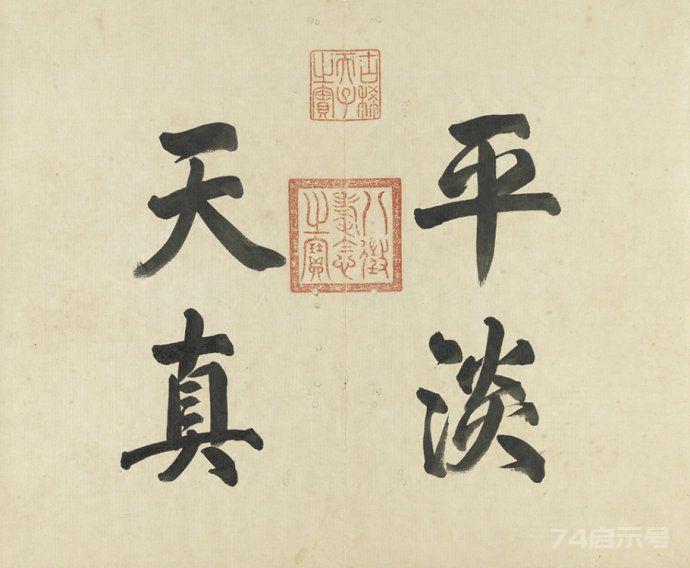 平淡
天真
古稀天子之寶
八徵耄念之寶
74启示号